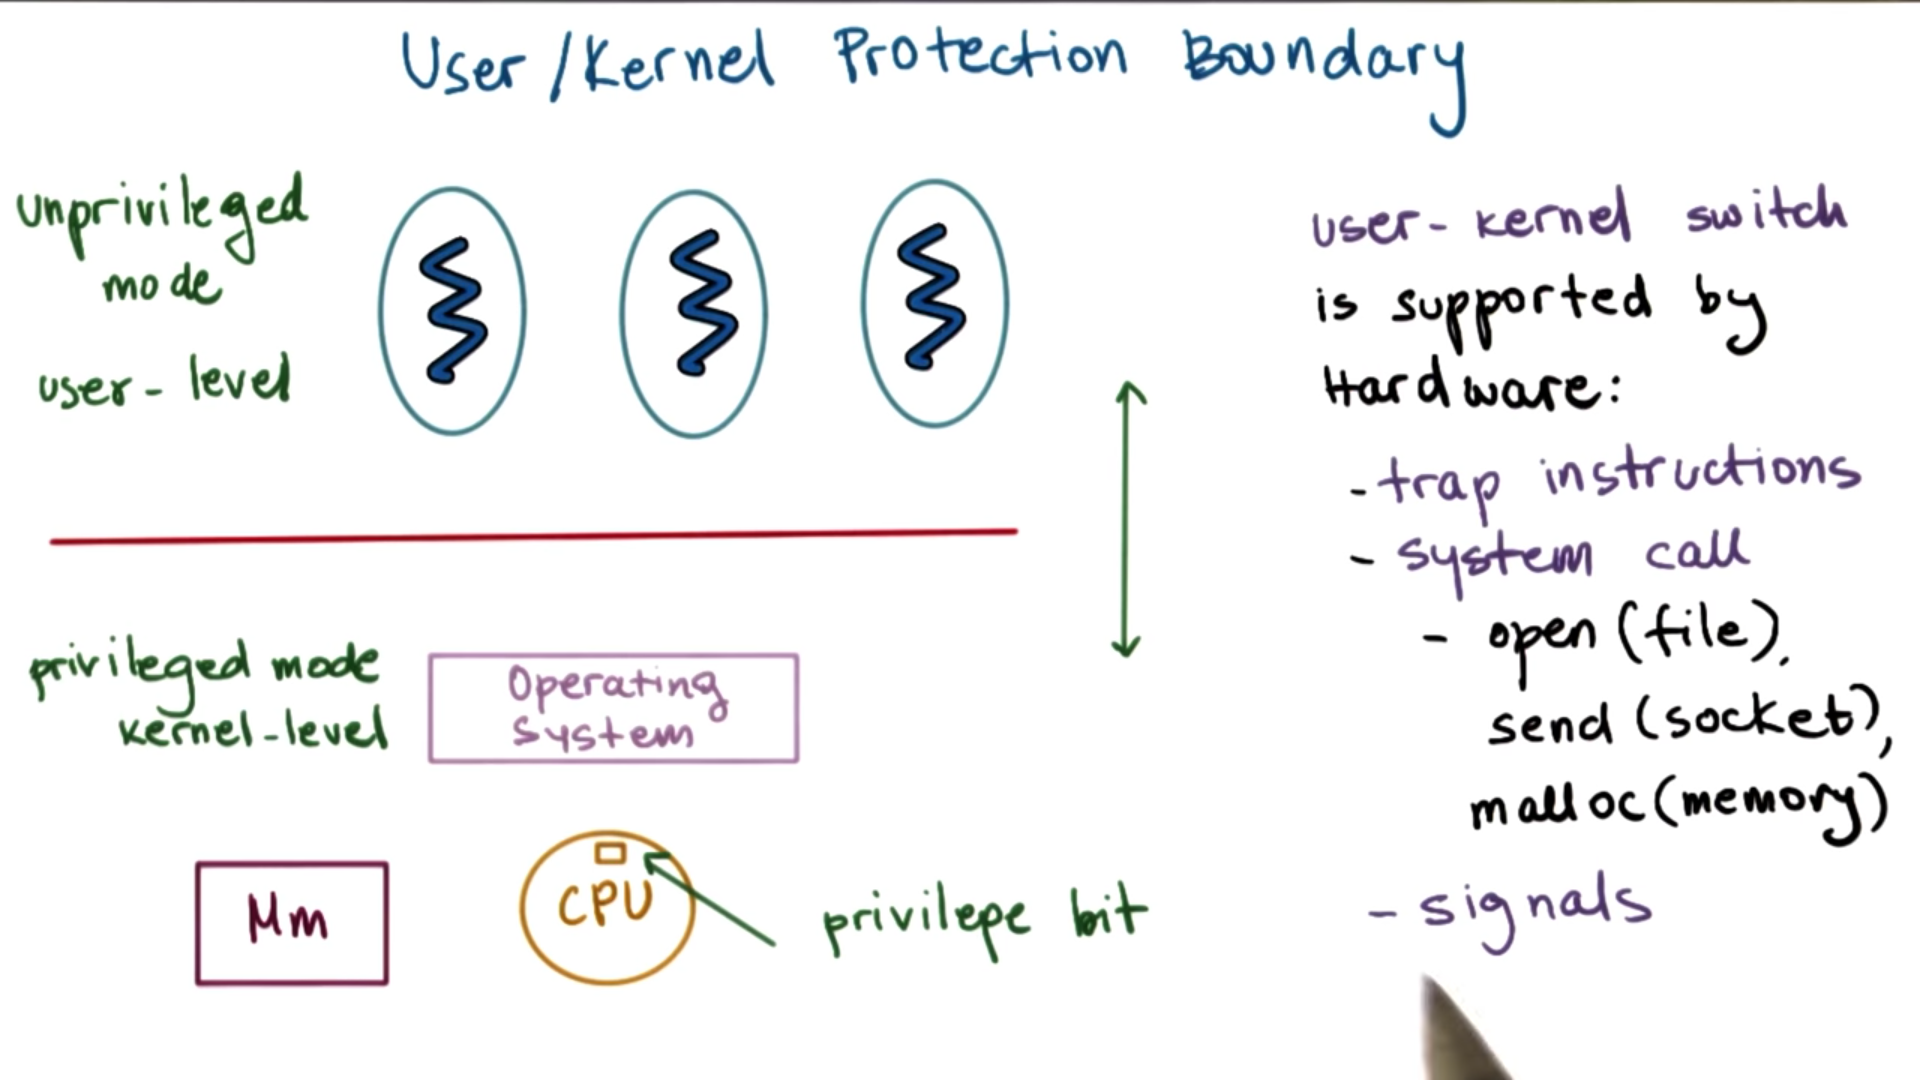 User/Kernel Protection Boundary
unprivileged
mode
user-level
privileged mode
kernel-level
Operating
System
Mm
CPU
privilepe bit
user-kernel switch
is supported by
Hardware:
- trap instructions
- system call
- open(file),
send(socket),
malloc(memory)
- signals